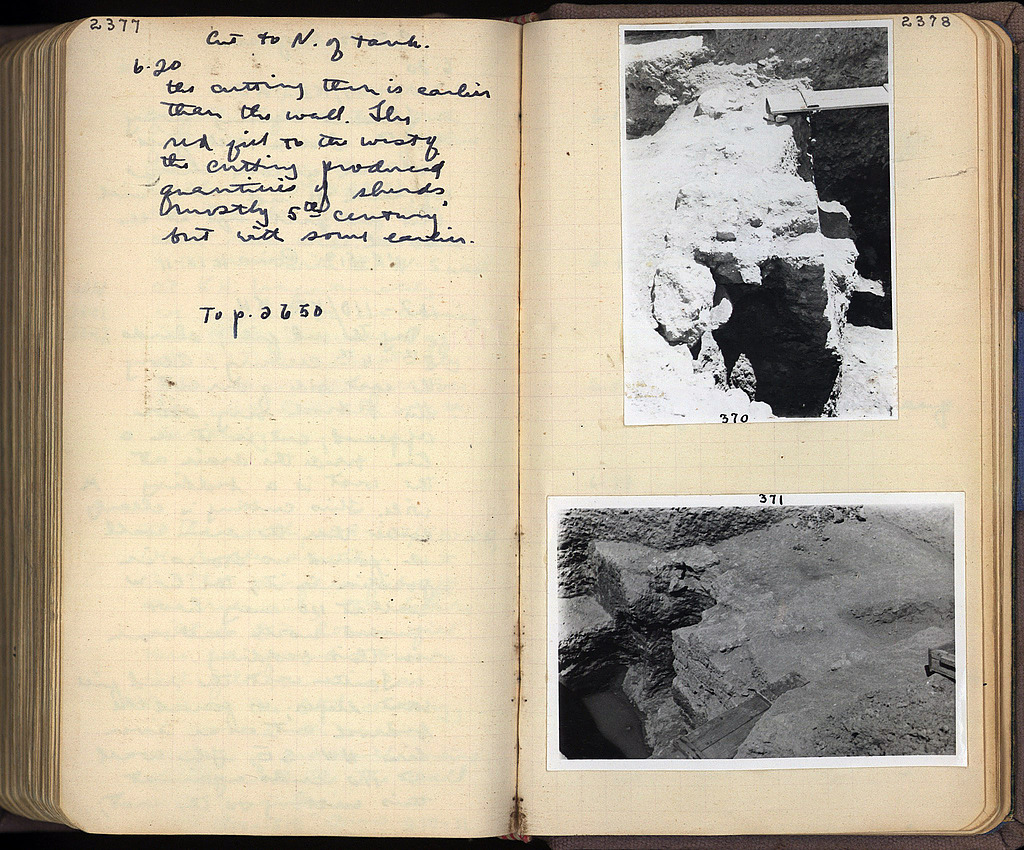 2377
Cut to N. of tank.
6.20
the cutting then is earlier
than the wall. The
red fill to the west of
the cutting produced
quantities of sherds
mostly 5th century
but with some earlier.
To p. 2650
2378
370
371